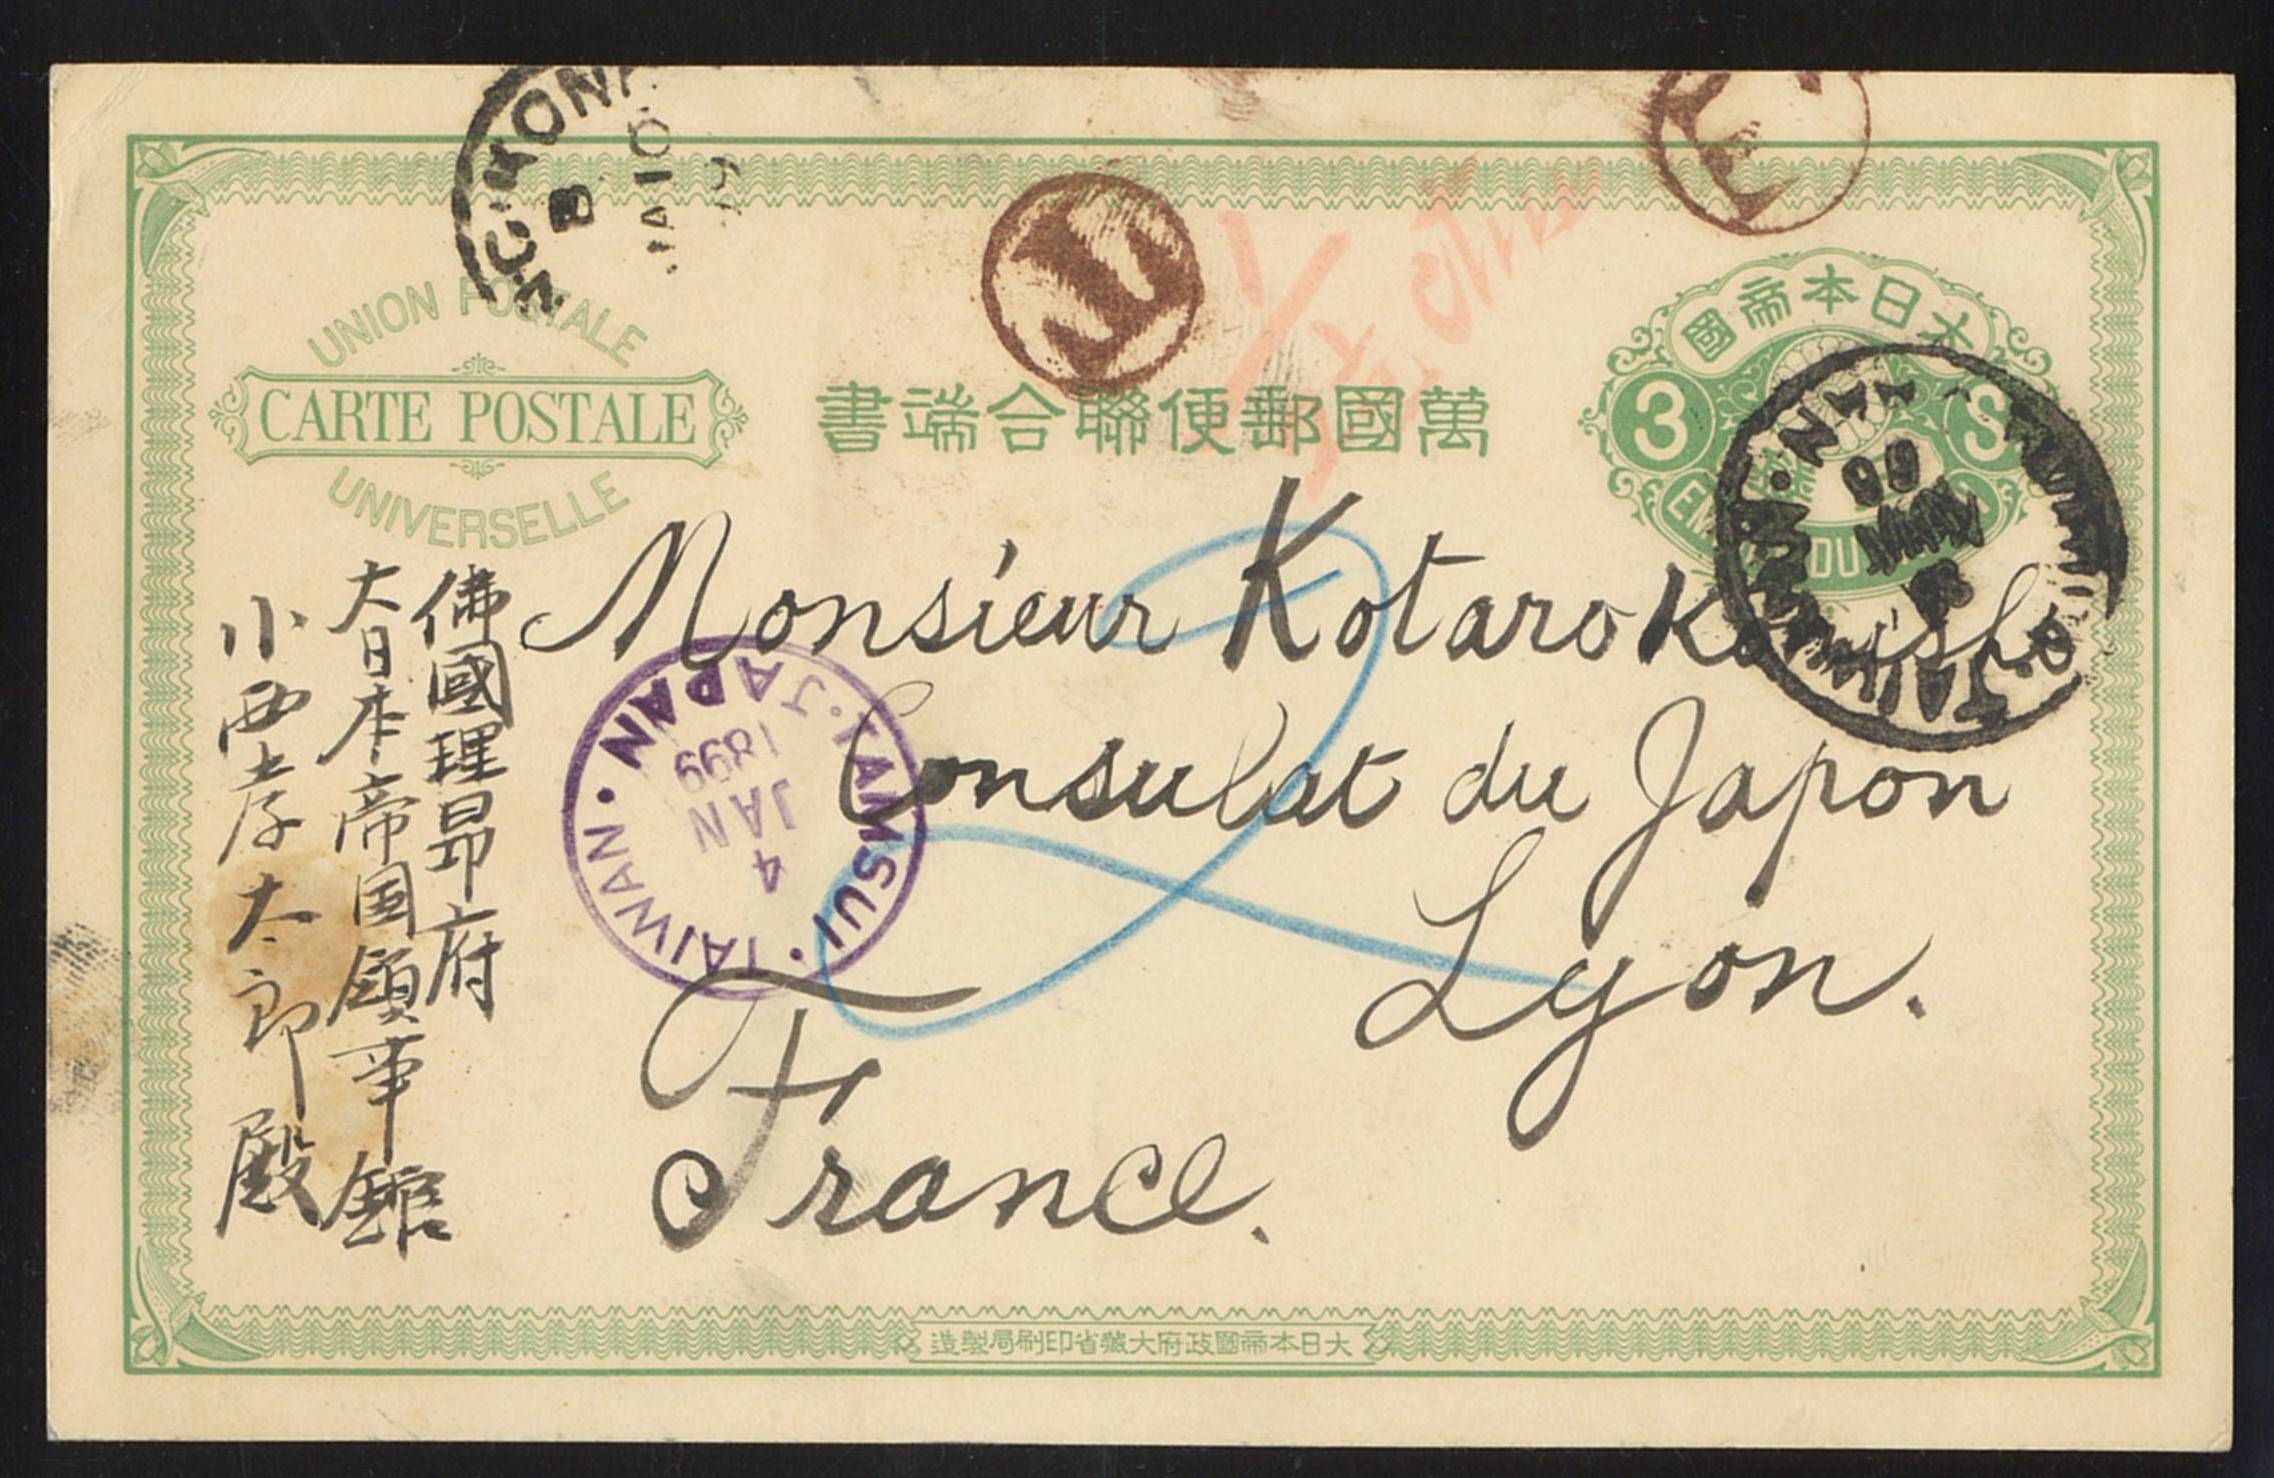 UNION POSTALE
CARTE POSTALE
UNIVERSELLE
萬國郵便聯合端書
大日本帝國
3 S
T
T
B
JA 10
99
99
Monsieur Kotaro Konishi
Consulat du Japon
Lyon.
France.
I.J. TAMSUI. TAIWAN. JAPAN
4
JAN
1899
佛國理昂府
大日本帝国領事館
小西孝太郎殿
大日本帝國政府大藏省印刷局製造